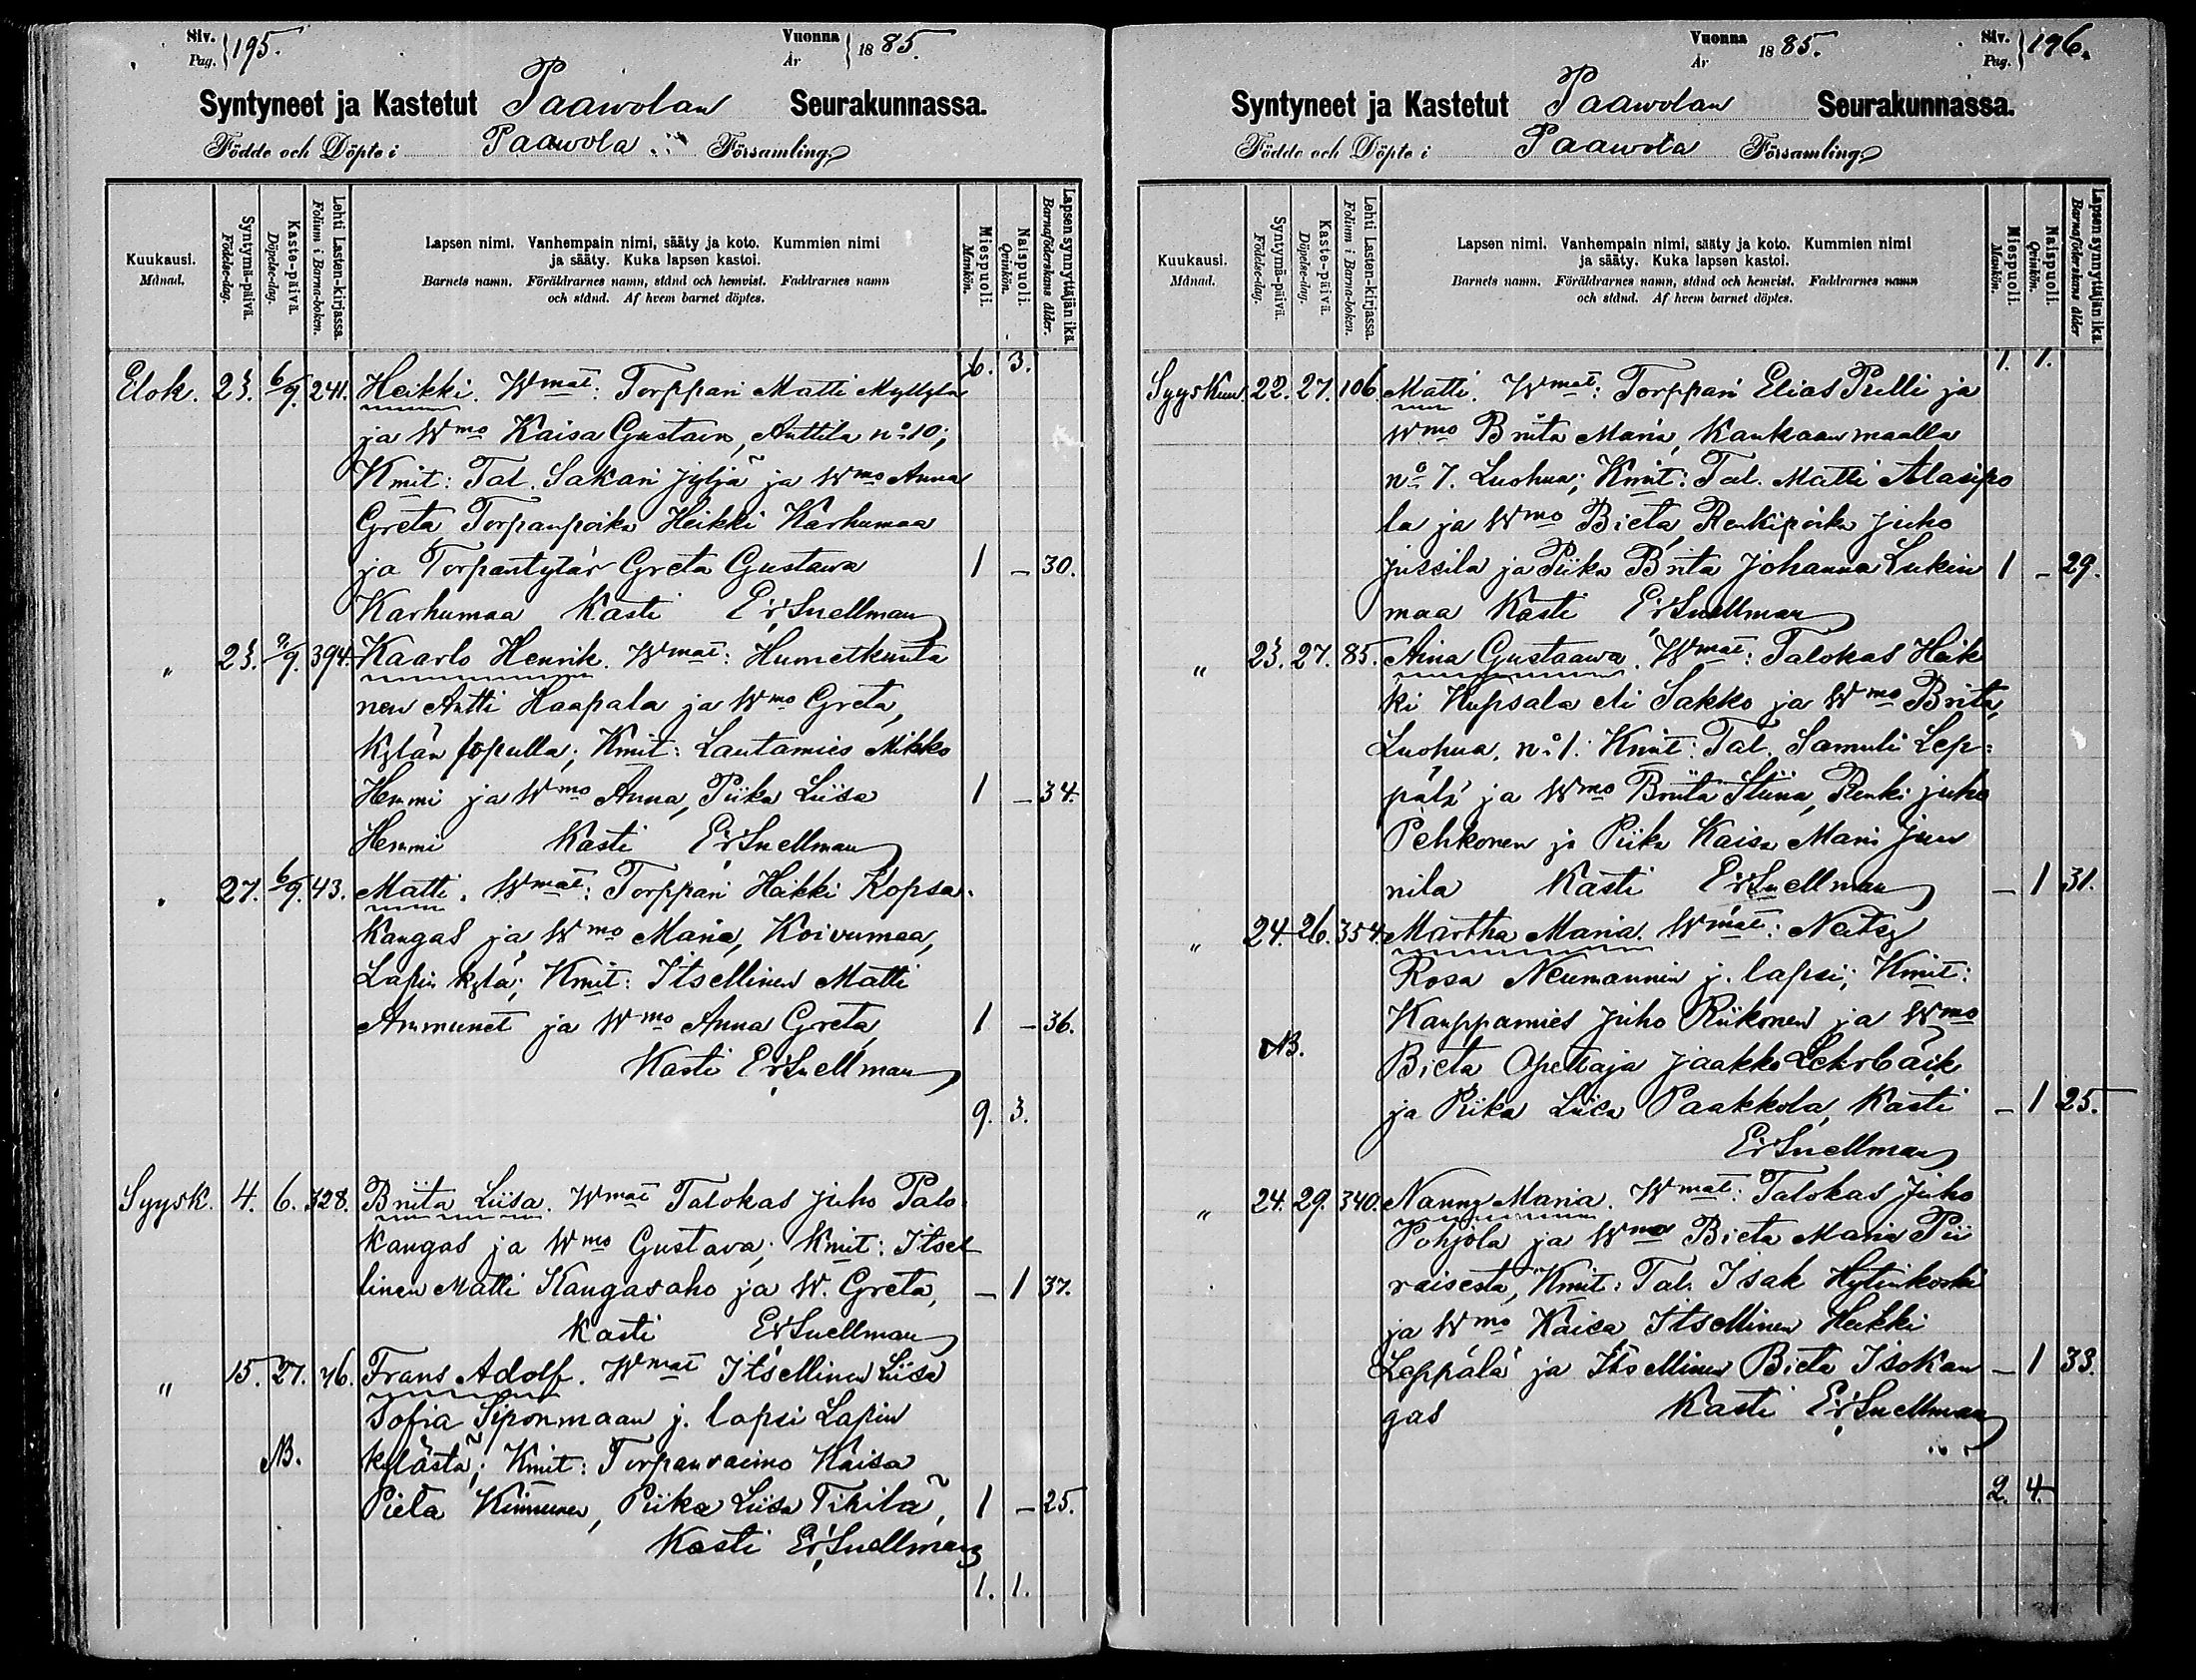 Siv. Pag. 195. Vuonna År 1885.
Syntyneet ja Kastetut Paawolan Seurakunnassa.
Födde och Döpte i Paawola Församling
Kuukausi. Månad.
Syntymä-päivä. Födelse-dag.
Kaste-päivä. Döpelse-dag.
Lehti Lasten-kirjassa. Folium i Barna-boken.
Lapsen nimi. Vanhempain nimi, sääty ja koto. Kummien nimi
ja sääty. Kuka lapsen kastoi.
Barnets namn. Föräldrarnes namn, stånd och hemvist. Faddrarnes namn
och stånd. Af hvem barnet döptes.
Miespuoli. Mankön.
Naispuoli. Qvinkön.
Lapsen synnyttäjän ikä. Barnaföderskans ålder.
6. 3.
Elok. 23. 6/9. 241. Heikki. Wmat: Torppari Matti Myllylä
ja Wmo Kaisa Gustava, Anttila no 10;
Kmit: Tal. Sakari Jyljä ja Wmo Anna
Greta, Torpanpoika Heikki Karhumaa
ja Torpantytär Greta Gustava 1 – 30.
Karhumaa Kasti Er Snellman
" 23. 9/9. 394. Kaarlo Henrik. Wmat: Humetkunta
nen Antti Haapala ja Wmo Greta,
Kylän lopulla; Kmit: Lautamies Mikko
Hemmi ja Wmo Anna, Piika Liisa 1 – 34.
Hemmi Kasti Er Snellman
" 27. 6/9. 43. Matti. Wmat: Torppari Heikki Kopsa-
kangas ja Wmo Maria, Koivumaa,
Lapin kylä; Kmit: Itsellinen Matti
Ammunet ja Wmo Anna Greta, 1 – 36.
Kasti Er Snellman
9. 3.
Syysk. 4. 6. 328. Briita Liisa. Wmat Talokas Juho Palo-
kangas ja Wmo Gustava; Kmit: Itsel
linen Matti Kangasaho ja W. Greta, – 1 37.
Kasti Er Snellman
" 15. 27. 76. Frans Adolf. Wmat Itsellinen Liisa
Sofia Siponmaan j. lapsi Lapin
NB. kylästä; Kmit: Torpanvaimo Kaisa
Pieta Kinnunen, Piika Liisa Tikilä, 1 – 25.
Kasti Er Snellman
1. 1.
Vuonna År 1885. Siv. Pag. 196.
Syntyneet ja Kastetut Paawolan Seurakunnassa.
Födde och Döpte i Paawola Församling
Kuukausi. Månad.
Syntymä-päivä. Födelse-dag.
Kaste-päivä. Döpelse-dag.
Lehti Lasten-kirjassa. Folium i Barna-boken.
Lapsen nimi. Vanhempain nimi, sääty ja koto. Kummien nimi
ja sääty. Kuka lapsen kastoi.
Barnets namn. Föräldrarnes namn, stånd och hemvist. Faddrarnes namn
och stånd. Af hvem barnet döptes.
Miespuoli. Mankön.
Naispuoli. Qvinkön.
Lapsen synnyttäjän ikä. Barnaföderskans ålder
1. 1.
Syyskuu 22. 27. 106. Matti. Wmat: Torppari Elias Pulli ja
Wmo Briita Maria, Kankaanmaalla
no 7. Luohua; Kmit: Tal. Matti Alasipo
la ja Wmo Bieta, Renkipoika Juho
Jussila ja Piika Brita Johanna Lukin 1 – 29.
maa Kasti Er Snellman
" 23. 27. 85. Aina Gustaawa. Wmat: Talokas Heik
ki Kupsala eli Sakko ja Wmo Brita,
Luohua. no 1. Kmit: Tal. Samuli Lep=
pälä ja Wmo Briita Stiina, Renki Juho
Pehkonen ja Piika Kaisa Maria Jun
nila Kasti Er Snellman – 1 31.
" 24. 26. 354. Martha Maria. Wmat: Neitsy
Rosa Neumannin j. lapsi; Kmit:
Kauppamies Juho Riikonen ja Wmo
NB. Bieta Opettaja Jaakko Lehrbäik
ja Piika Liisa Paakkola, Kasti – 1 25.
Er Snellman
" 24. 29. 340. Nanny Maria. Wmat: Talokas Juho
Pohjola ja Wmo Bieta Maria Pii
raisesta, Kmit: Tal. Isak Hytinkoski
ja Wmo Kaisa, Itsellinen Heikki
Leppälä ja Itsellinen Bieta Isokan – 1 33.
gas Kasti Er Snellman
2. 4.